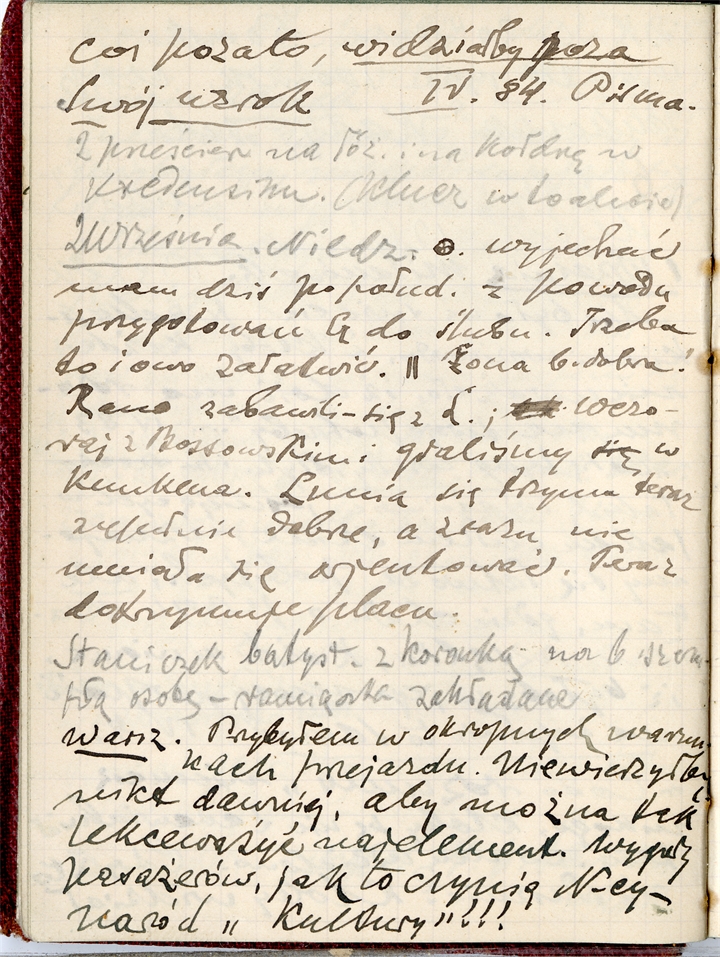 coś pozato, widziałby poza
Swój wzrok IV. 84. Pisma.
2 prześcier na łóż. i na kołdrę w
kredensiku. (Klucz w toalecie)
2 Września. Niedz. o. wyjechać
mam dziś popołud. z powodu
przygotowań Ł do ślubu. Trzeba
to i owo załatwić. " Żona b. dobra!
Rano zabawili-się z Ł.; wczo-
raj z Rossowskimi graliśmy się w
Kunkena. Lunia się trzyma teraz
zupełnie dobrze, a zrazu nie
umiała się orjentować. Teraz
dotrzymuje placu.
Staniczek batyst. z koronką na b szczu-
płą osobę – ramiączka zakładane
Warsz. Przybyłem w okropnych warun-
kach przejazdu. Niewierzyłby
nikt dawniej, aby można tak
lekceważyć najelement. wygody
pasażerów, jak to czynią N-cy-
naród „ Kultury"!!!